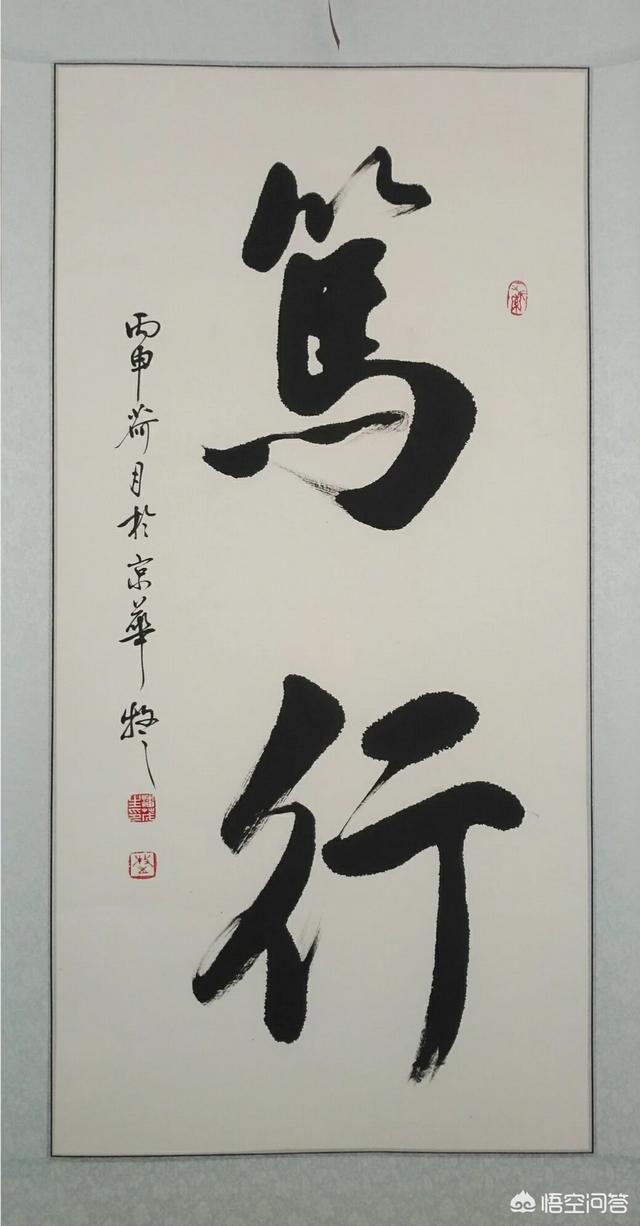 篤行
丙申荷月於京華牧之
悟空问答